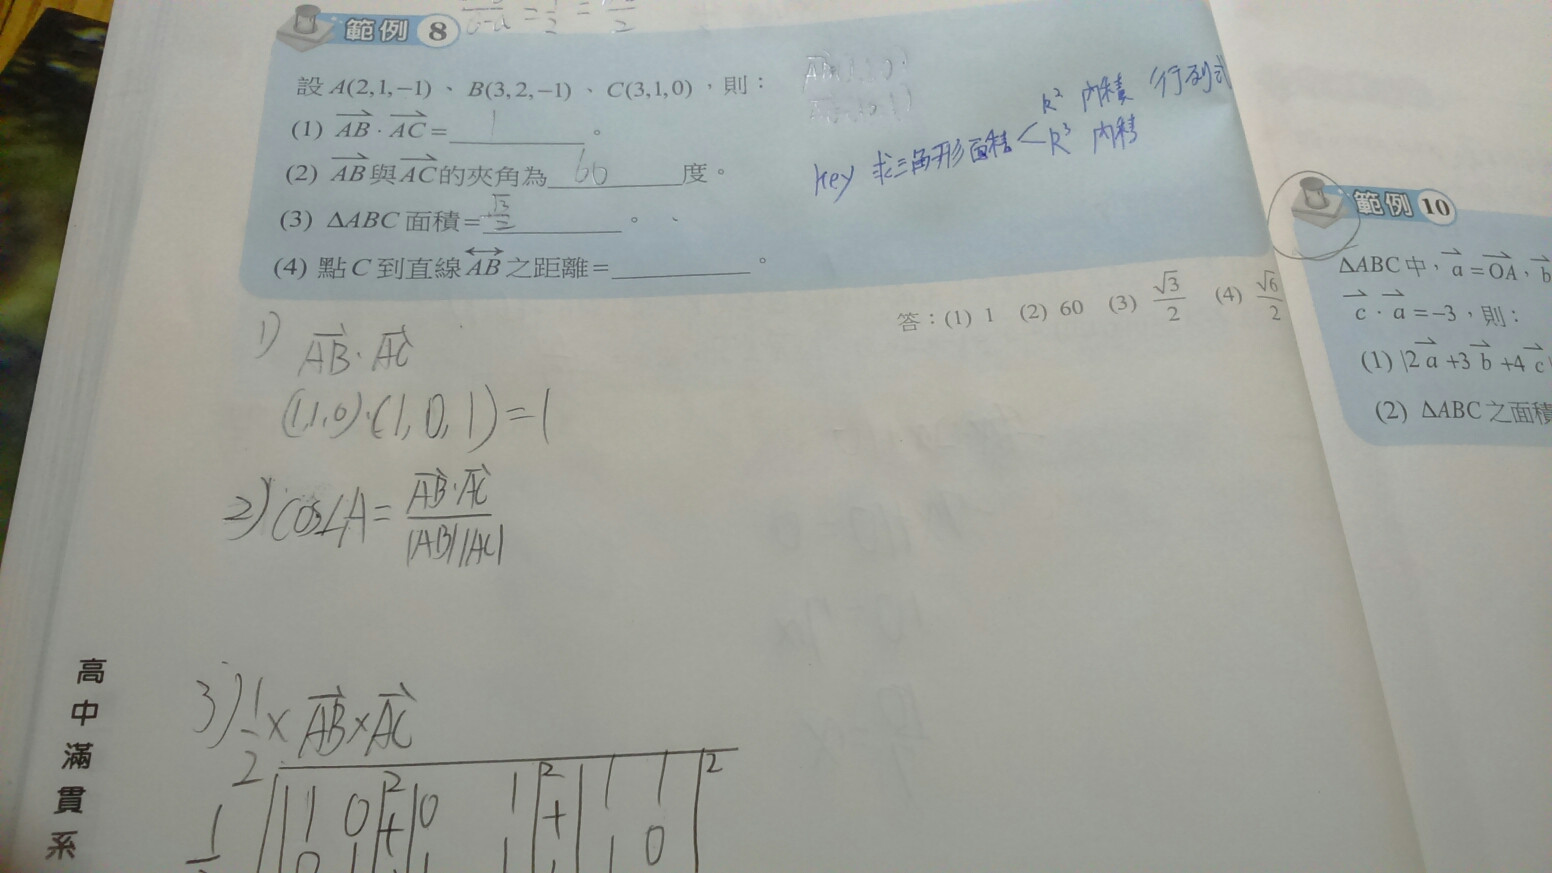 範例 8
設 A(2,1,−1)、B(3,2,−1)、C(3,1,0),則:
(1) AB · AC = 1 。
(2) AB與AC的夾角為 60 度。
(3) ΔABC 面積= √3/2 。
(4) 點 C 到直線 AB 之距離= 。
R² 內積 行列式
key 求三角形面積 < R³ 內積
答:(1) 1 (2) 60 (3) √3/2 (4) √6/2
1) AB · AC
(1,1,0)·(1,0,1)=1
2) cos∠A = AB·AC / |AB||AC|
3) 1/2 × AB × AC
1 0 2 + 0 1 2 + 1 1 2
0 1 1 1 1 0
範例 10
ΔABC 中,a = OA,b
c · a = −3,則:
(1) |2a +3b +4c|
(2) ΔABC 之面積
高中滿貫系